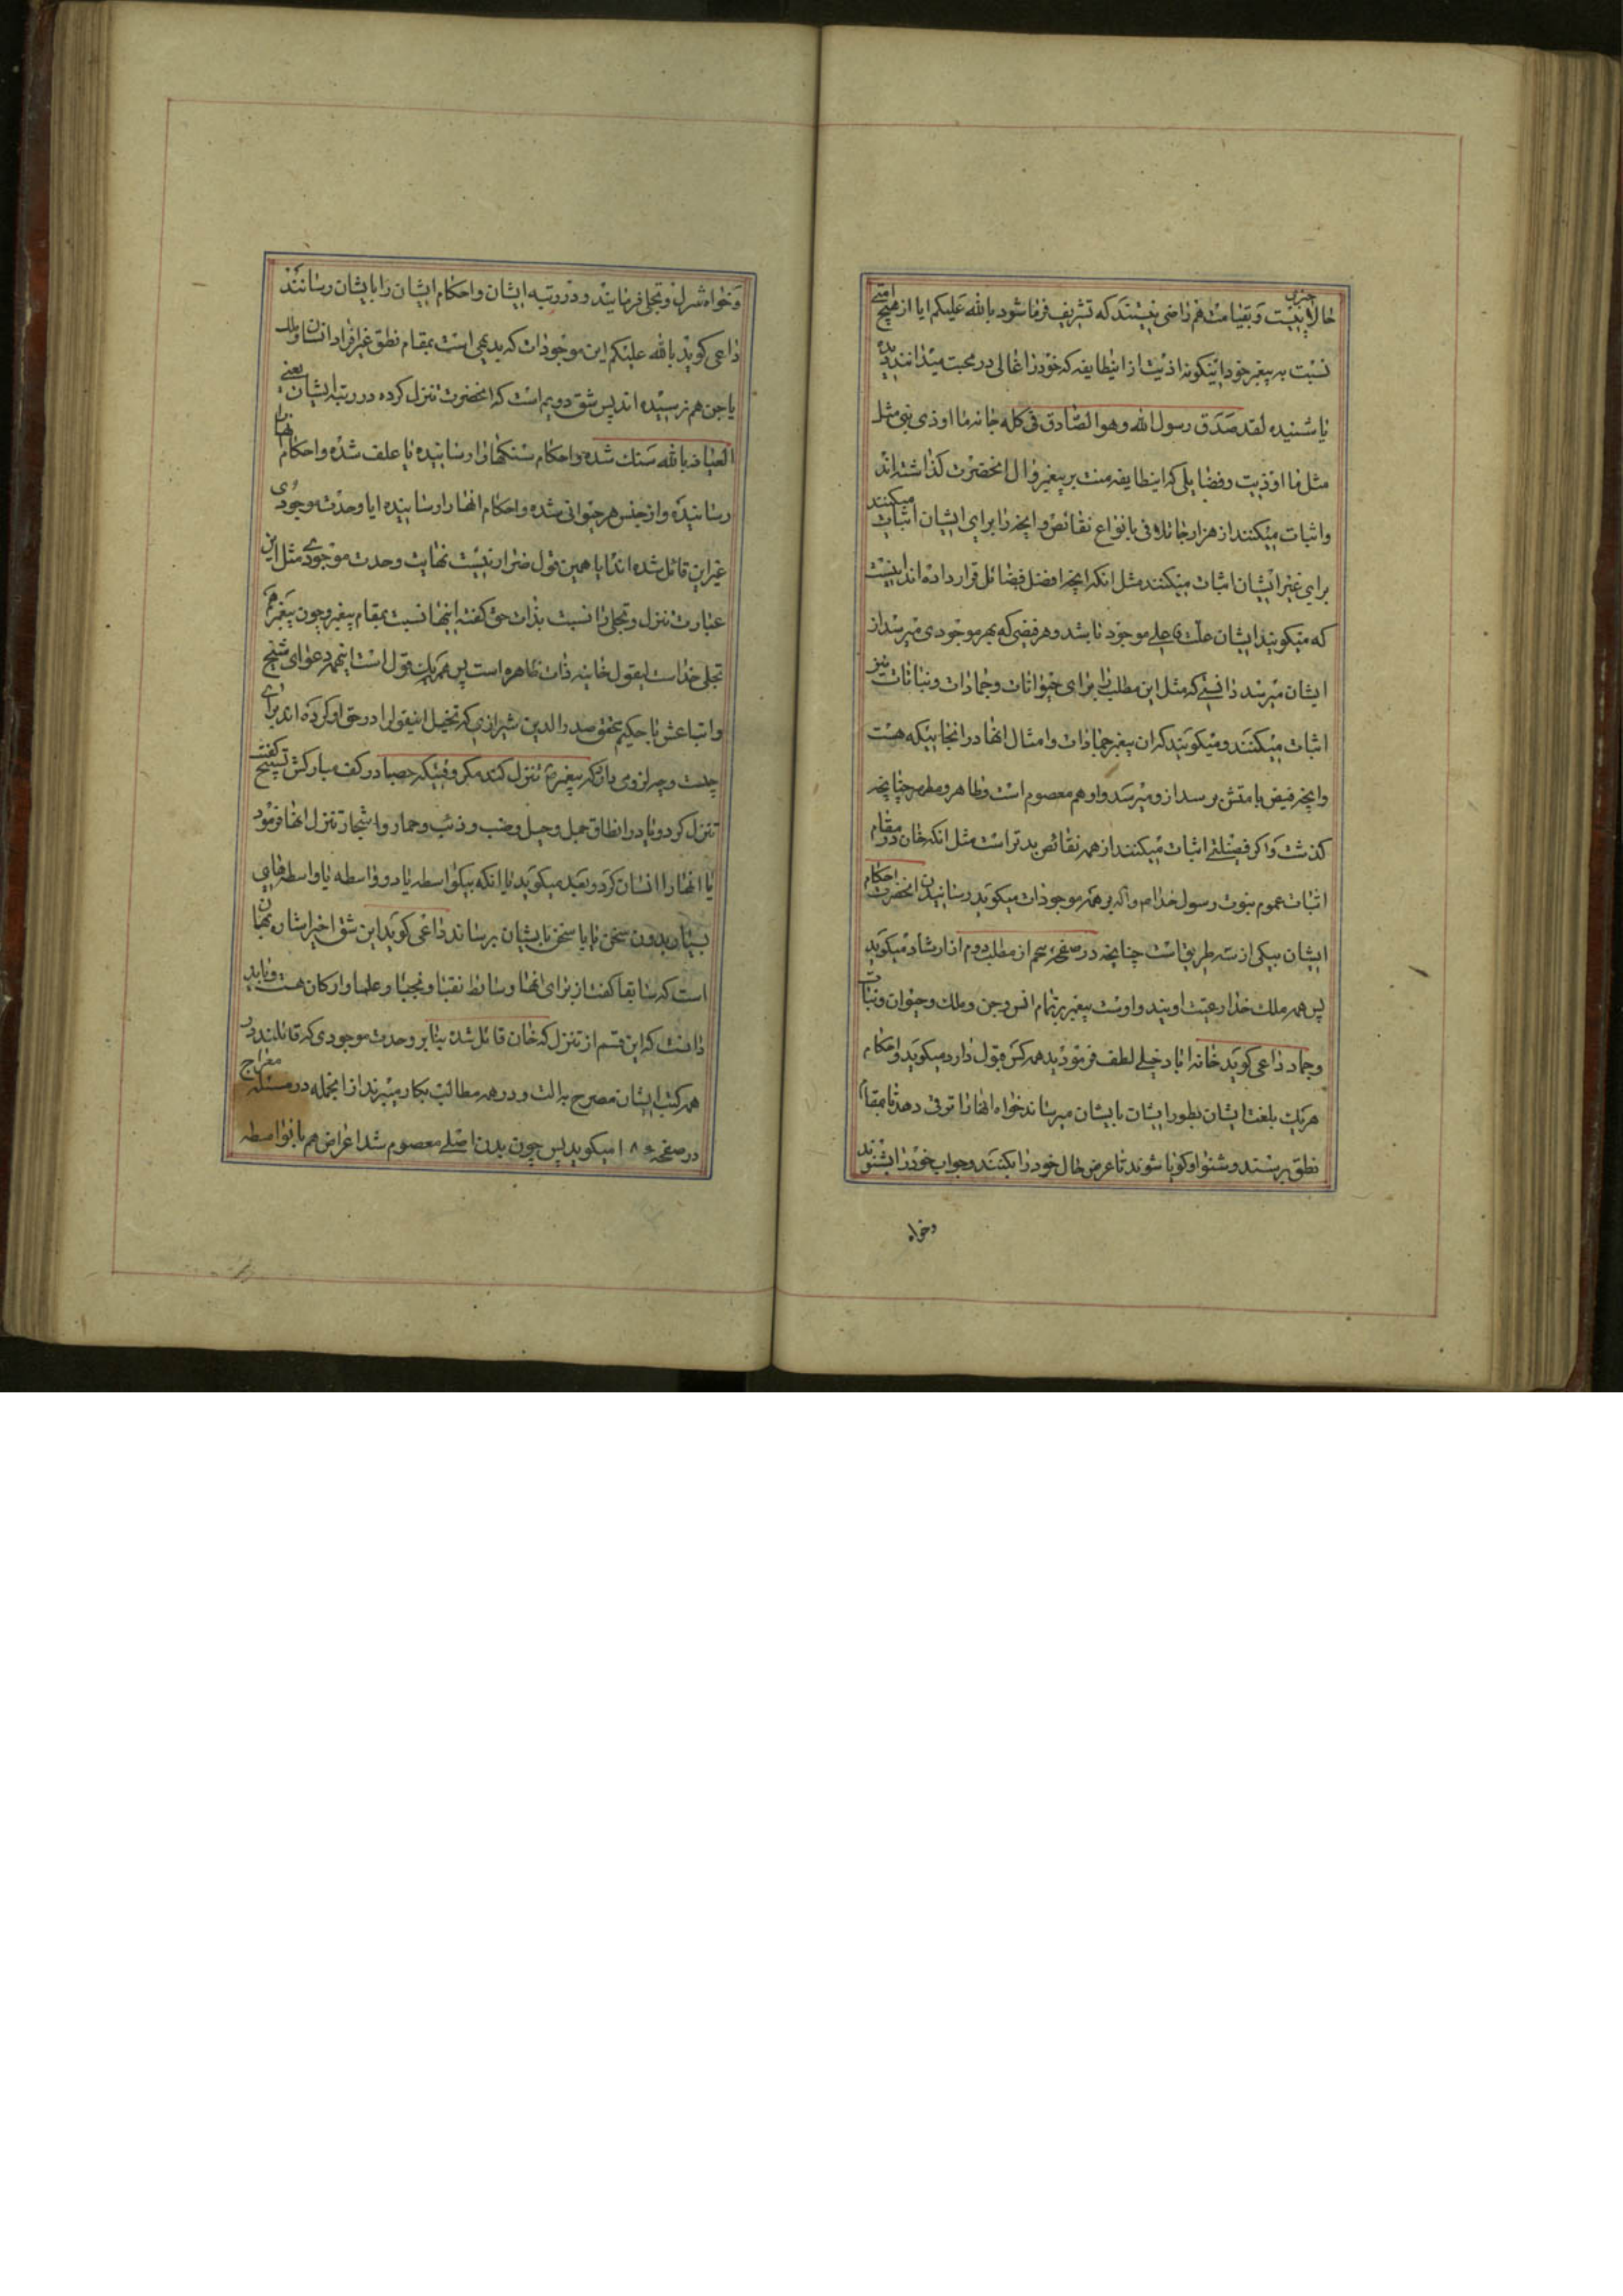 حالا نیست و بقیامت هم راضی نیستند که تشریف فرما شود بالله علیکم ایا از هیچ امتی
نسبت به پیغمبر خود اینکونه اذیت از اینطایفه که خود را غالی در محبت میدانند دیده
یا شنیده لقد صدق رسول الله وهو الصادق فی کله جانه ما اوذی نبی مثل
مثل ما اوذیت و فضایلی که اینطایفه منت بر پیغمبر و ال انحضرت کذاشته اند
و اثبات میکنند از هزار جا تلافی بانواع نقائص و انچه را برای ایشان اثبات میکنند
برای غیر ایشان اثبات میکنند مثل انکه انچه افضل فضائل قرار داده اند اینست
که میکویند ایشان علت فاعلی موجود باشد و هر فیضی که بهر موجودی میرسد از
ایشان میرسد دانستی که مثل این مطلب را برای حیوانات و جمادات و نباتات نیز
اثبات میکنند و میکویند که ان پیغمبر جمادات و امثال انها در انجا بیکه هست
و انچه فیض بامتش برسد از او میرسد و او هم معصوم است و طاهر و مطهر چنانچه
کذشت و اکر فضیلتی اثبات میکنند از همه نقائص بدتر است مثل انکه خان در مقام
اثبات عموم نبوت رسول خدا ص و اله بر همه موجودات میکوید رسانیدن انحضرت احکام
ایشان بیکی از سه طریق است چنانچه در صفحه سیم از مطلب دوم از ارشاد میکوید
پس همه ملک خدا رعیت اویند و اوست پیغمبر بر تمام انس و جن و ملک و حیوان و نبات
و جماد داعی کوید خانه اباد خیلی لطف فرمودید همه کس قبول دارد میکوید و احکام
هریک بلغت ایشان بطور ایشان بایشان میرساند خواه انها را ترقی دهد تا بمقام
نطق برسند و شنوا و کویا شوند تا عرض حال خود را بکنند و جواب خود را بشنوند
وخواه
و خواه تنزل و تجلی فرمایند و در رتبه ایشان و احکام ایشان را بایشان رسانند
داعی کوید بالله علیکم این موجودات که بدیهی است بمقام نطق غیر افراد انسان و ملک
یا جن هم نرسیده اند پس شق دویم است که انحضرت تنزل کرده در رتبه ایشان یعنی
العیاذ بالله سنک شده و احکام سنکها را رسانیده یا علف شده و احکام انها را
رسانیده و از جنس هر حیوانی شده و احکام انها را رسانیده ایا وحدت موجودی
غیر این قائل شده اند ایا همین قول ضرار نیست نهایت وحدت موجودی مثل این
عبارت تنزل و تجلی را نسبت بذات حق کفته اینها نسبت بمقام پیغمبر و چون پیغمبر هم
تجلی خداست بقول خاینه ذات ظاهره است پس همه یک قول است اینهمه دعوای شیخ
و اتباعش با حکیم محقق صدر الدین شیرازی که تخیل اینقول را در حق او کرده اند برای
چیست و چه لزومی دارد که پیغمبر ص تنزل کند مکر وقتیکه حصبا در کف مبارکش تسبیح کفت
تنزل کرد و یا در انطاق جمل و جبل و ضب و ذئب و حمار و اشجار تنزل انها فرمود
یا انها را انسان کرد و بعد میکوید یا انکه بیکواسطه یا دو واسطه یا واسطه های
بسیار بدون سخن یا با سخن بایشان برساند داعی کوید این شق اخیر اشاره بهمان
است که سابقا کفت از برای انها وسائط نقبا و نجبا و علما و ارکان هست و باید
دانست که این قسم از تنزل که خان قائل شده بنابر وحدت موجودی که قائلند در
همه کتب ایشان مصرح به الت و در همه مطالب بکار میبرند از انجمله در مسئله معراج
در صفحه ۱۸۰ میکوید پس چون بدن اصلی معصوم شد اعراض هم بانواسطه